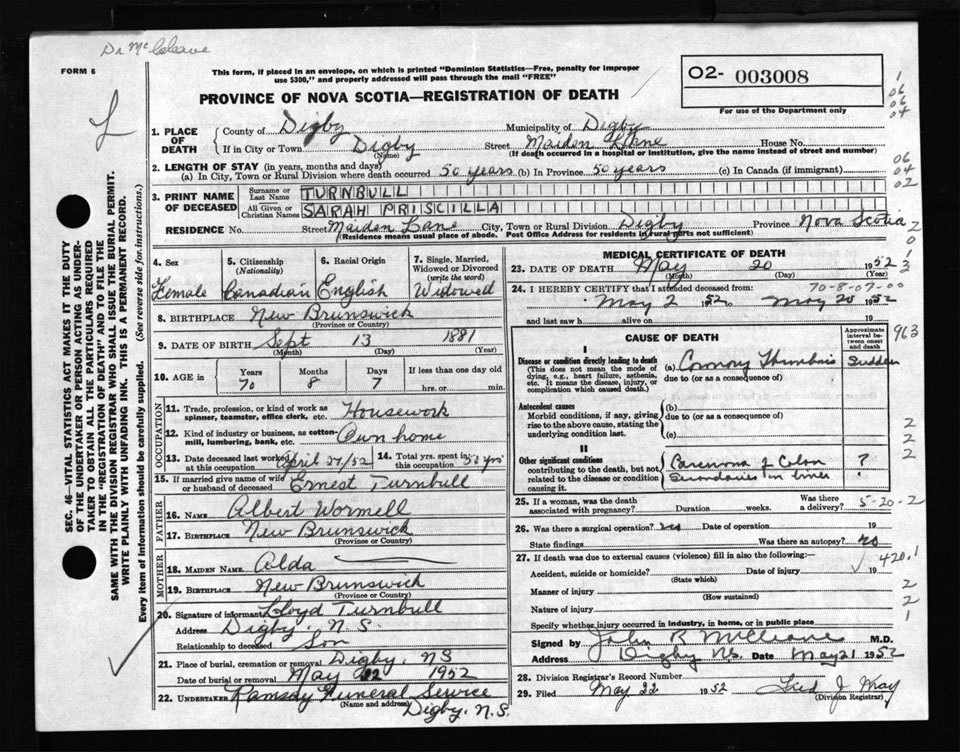 Dr McCleave
FORM 6
This form, if placed in an envelope, on which is printed "Dominion Statistics—Free, penalty for improper use $300," and properly addressed will pass through the mail "FREE"
O2- 003008
For use of the Department only
PROVINCE OF NOVA SCOTIA—REGISTRATION OF DEATH
1. PLACE OF DEATH
County of Digby Municipality of Digby
If in City or Town Digby (Name) Street Maiden Lane House No.
(If death occurred in a hospital or institution, give the name instead of street and number)
2. LENGTH OF STAY (in years, months and days)
(a) In City, Town or Rural Division where death occurred 50 years (b) In Province 50 years (c) In Canada (if immigrant)
3. PRINT NAME OF DECEASED
Surname or Last Name TURNBULL
All Given or Christian Names SARAH PRISCILLA
RESIDENCE No. Street Maiden Lane City, Town or Rural Division Digby Province Nova Scotia
(Residence means usual place of abode. Post Office Address for residents in rural parts not sufficient)
4. Sex
Female
5. Citizenship (Nationality)
Canadian
6. Racial Origin
English
7. Single, Married, Widowed or Divorced (write the word)
Widowed
8. BIRTHPLACE New Brunswick
(Province or Country)
9. DATE OF BIRTH Sept 13 1881
(Month) (Day) (Year)
10. AGE in Years 70 Months 8 Days 7 If less than one day old hrs. or min.
OCCUPATION
11. Trade, profession, or kind of work as spinner, teamster, office clerk, etc. Housework
12. Kind of industry or business, as cotton-mill, lumbering, bank, etc. Own home
13. Date deceased last worked at this occupation April 27/52
14. Total yrs. spent in this occupation 50 yrs
15. If married give name of wife or husband of deceased Ernest Turnbull
FATHER
16. NAME Albert Wormell
17. BIRTHPLACE New Brunswick
(Province or Country)
MOTHER
18. MAIDEN NAME Alda
19. BIRTHPLACE New Brunswick
(Province or Country)
20. Signature of informant Lloyd Turnbull
Address Digby. N.S.
Relationship to deceased Son
21. Place of burial, cremation or removal Digby, NS
Date of burial or removal May 22 1952
22. UNDERTAKER Ramsay Funeral Service
(Name and address)
Digby, N.S.
MEDICAL CERTIFICATE OF DEATH
23. DATE OF DEATH May 20 1952
(Month) (Day) (Year)
24. I HEREBY CERTIFY that I attended deceased from: 70-8-07-00
May 2 1952 to May 20 1952
and last saw h alive on 19
CAUSE OF DEATH
Approximate interval between onset and death
I
Disease or condition directly leading to death
(This does not mean the mode of dying, e.g., heart failure, asthenia, etc. It means the disease, injury, or complication which caused death.)
(a) Coronary Thrombosis Sudden
due to (or as a consequence of)
Antecedent causes
Morbid conditions, if any, giving rise to the above cause, stating the underlying condition last.
(b)
due to (or as a consequence of)
(c)
II
Other significant conditions contributing to the death, but not related to the disease or condition causing it.
Carcinoma of Colon ?
Secondaries in liver
25. If a woman, was the death associated with pregnancy? Duration weeks. Was there a delivery? 5-20-2
26. Was there a surgical operation? Date of operation 19
State findings Was there an autopsy? no
27. If death was due to external causes (violence) fill in also the following:— 420.1
Accident, suicide or homicide? (State which) Date of injury 19
Manner of injury (How sustained)
Nature of injury
Specify whether injury occurred in industry, in home, or in public place
Signed by M.D.
Address Digby NS. Date May 21 1952
28. Division Registrar's Record Number
29. Filed May 22 1952 Fred J May
(Division Registrar)
SEC. 46—VITAL STATISTICS ACT MAKES IT THE DUTY OF THE UNDERTAKER OR PERSON ACTING AS UNDERTAKER TO OBTAIN ALL THE PARTICULARS REQUIRED IN THE "REGISTRATION OF DEATH" AND TO FILE THE SAME WITH THE DIVISION REGISTRAR WHO SHALL ISSUE THE BURIAL PERMIT. WRITE PLAINLY WITH UNFADING INK. THIS IS A PERMANENT RECORD.
Every item of information should be carefully supplied. (See reverse side for instructions.)
1
06
06
04
06
04
02
2
0
1
3
963
2
2
2
2
2
1